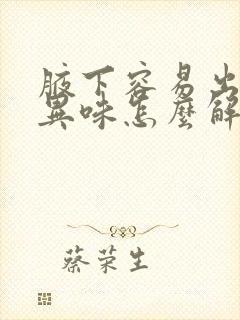 腋下容易出
異味怎麼解
蔡荣生